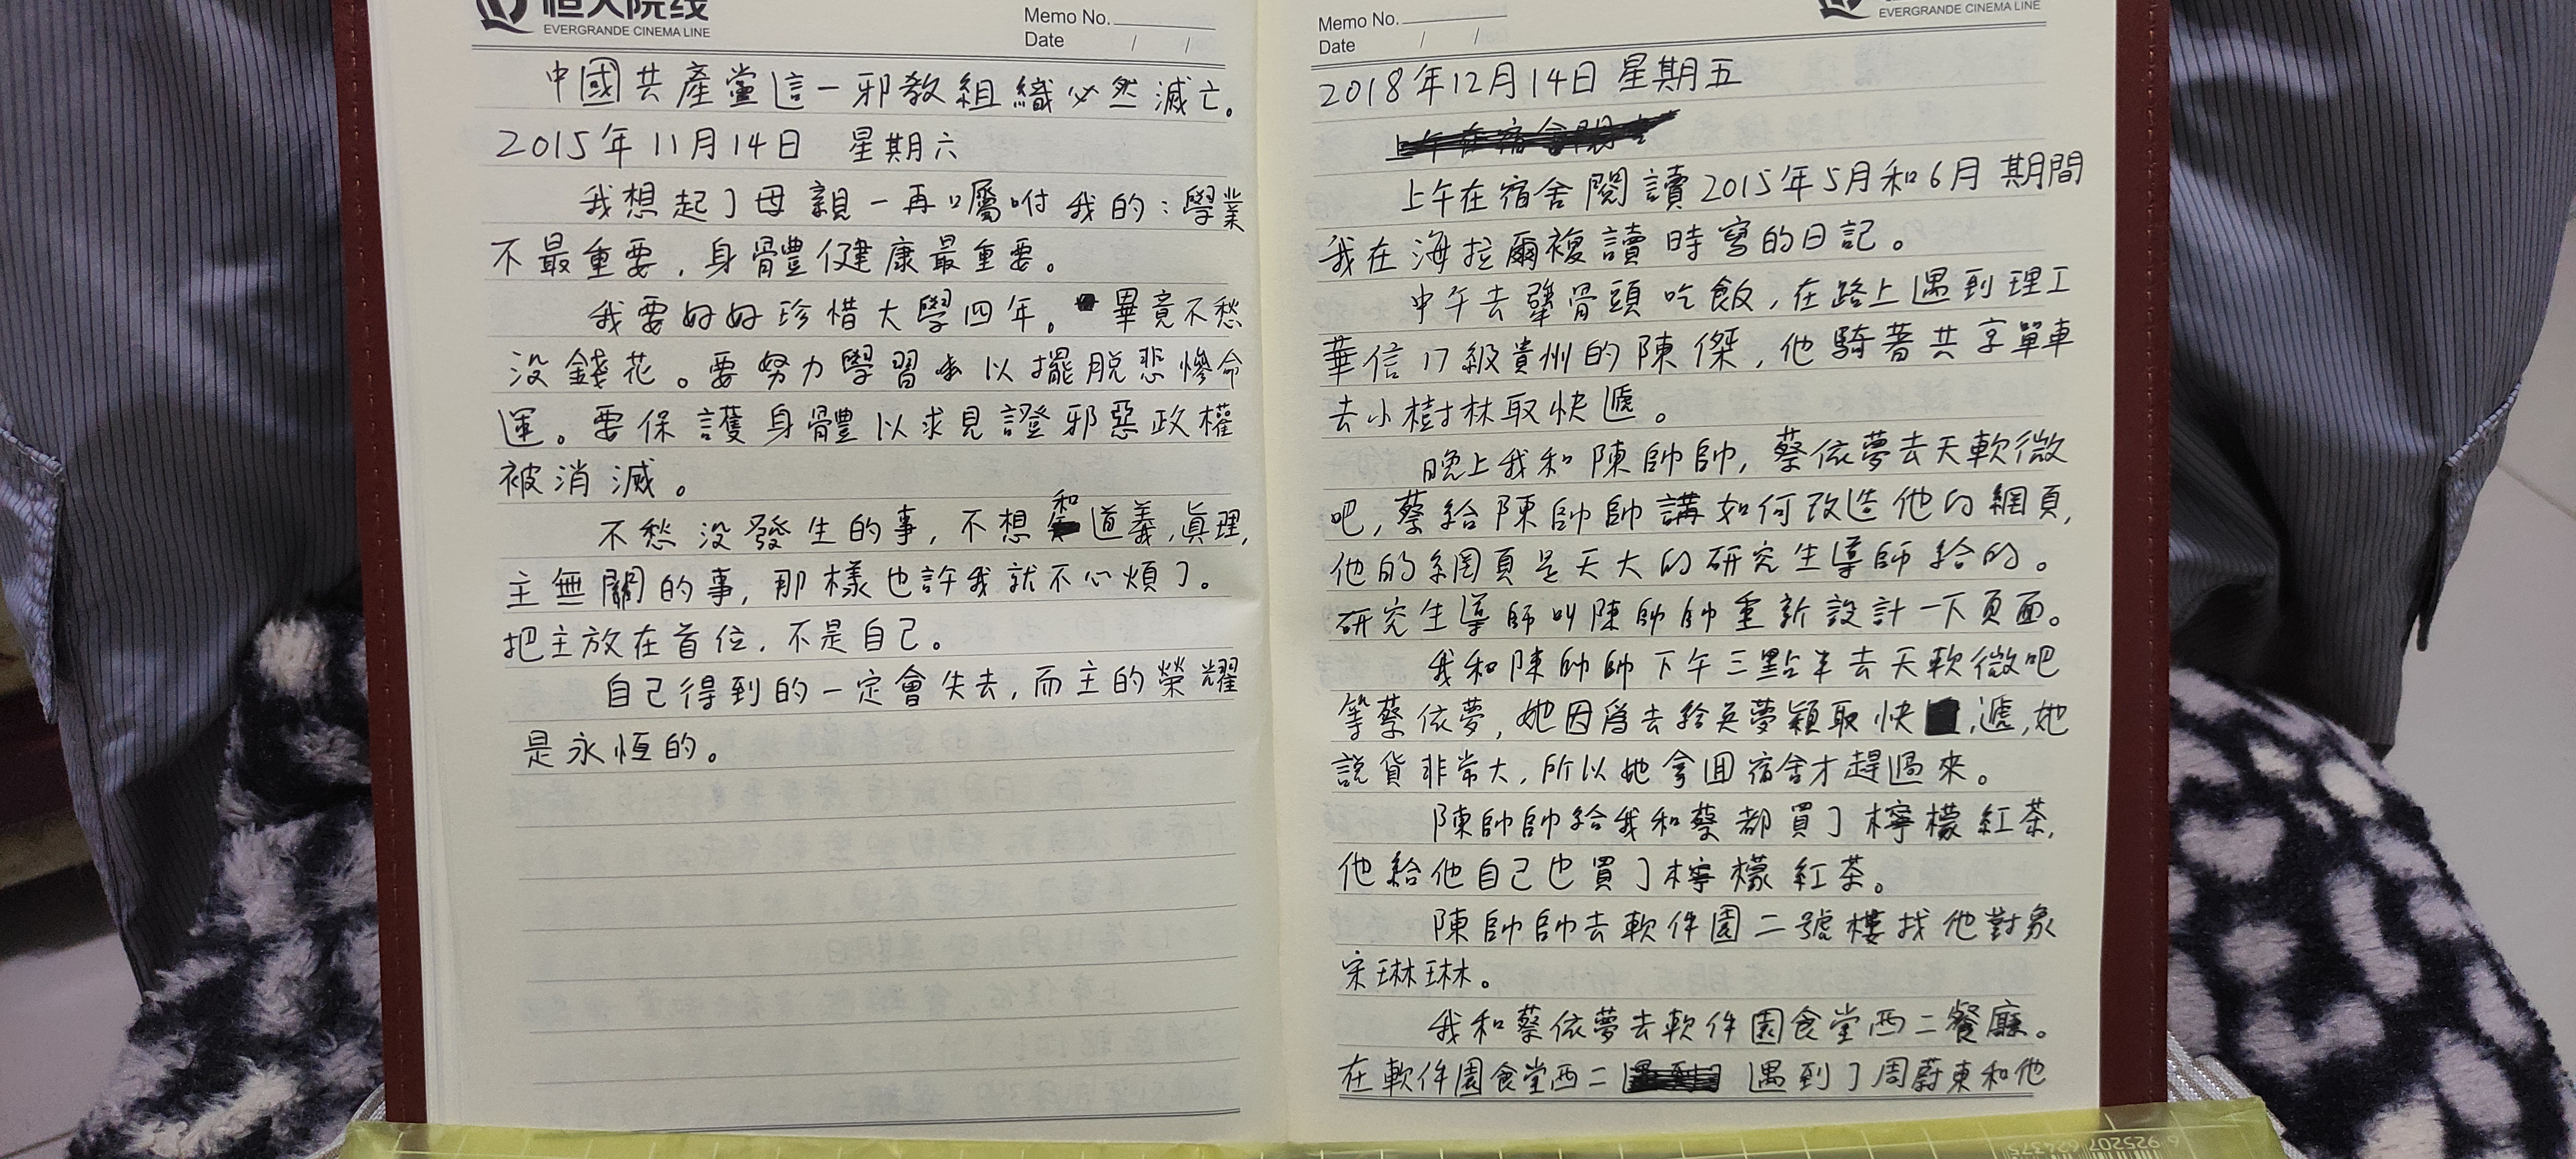 恒大院线
EVERGRANDE CINEMA LINE
Memo No.
Date / /
中國共產黨這一邪教組織必然滅亡。
2015年11月14日 星期六
我想起了母親一再囑咐我的：學業
不最重要，身體健康最重要。
我要好好珍惜大學四年。畢竟不愁
没錢花。要努力學習以擺脱悲慘命
運。要保護身體以求見證邪惡政權
被消滅。
不愁没發生的事，不想和道義，眞理，
主無關的事，那樣也許我就不心煩了。
把主放在首位，不是自己。
自己得到的一定會失去，而主的榮耀
是永恆的。
Memo No.
Date / /
EVERGRANDE CINEMA LINE
2018年12月14日 星期五
上午在宿舍閱讀2015年5月和6月期間
我在海拉爾複讀時寫的日記。
中午去犟骨頭吃飯，在路上遇到理工
華信17級貴州的陳傑，他騎着共享單車
去小樹林取快遞。
晚上我和陳帥帥，蔡依夢去天軟微
吧，蔡給陳帥帥講如何改造他的網頁，
他的網頁是天大的研究生導師給的。
研究生導師叫陳帥帥重新設計一下頁面。
我和陳帥帥下午三點半去天軟微吧
等蔡依夢，她因爲去給吳夢穎取快遞，她
說貨非常大，所以她拿回宿舍才趕過來。
陳帥帥給我和蔡都買了檸檬紅茶，
他給他自己也買了檸檬紅茶。
陳帥帥去軟件園二號樓找他對象
宋琳琳。
我和蔡依夢去軟件園食堂西二餐廳。
在軟件園食堂西二遇到了周蔚東和他
6 925207 624375